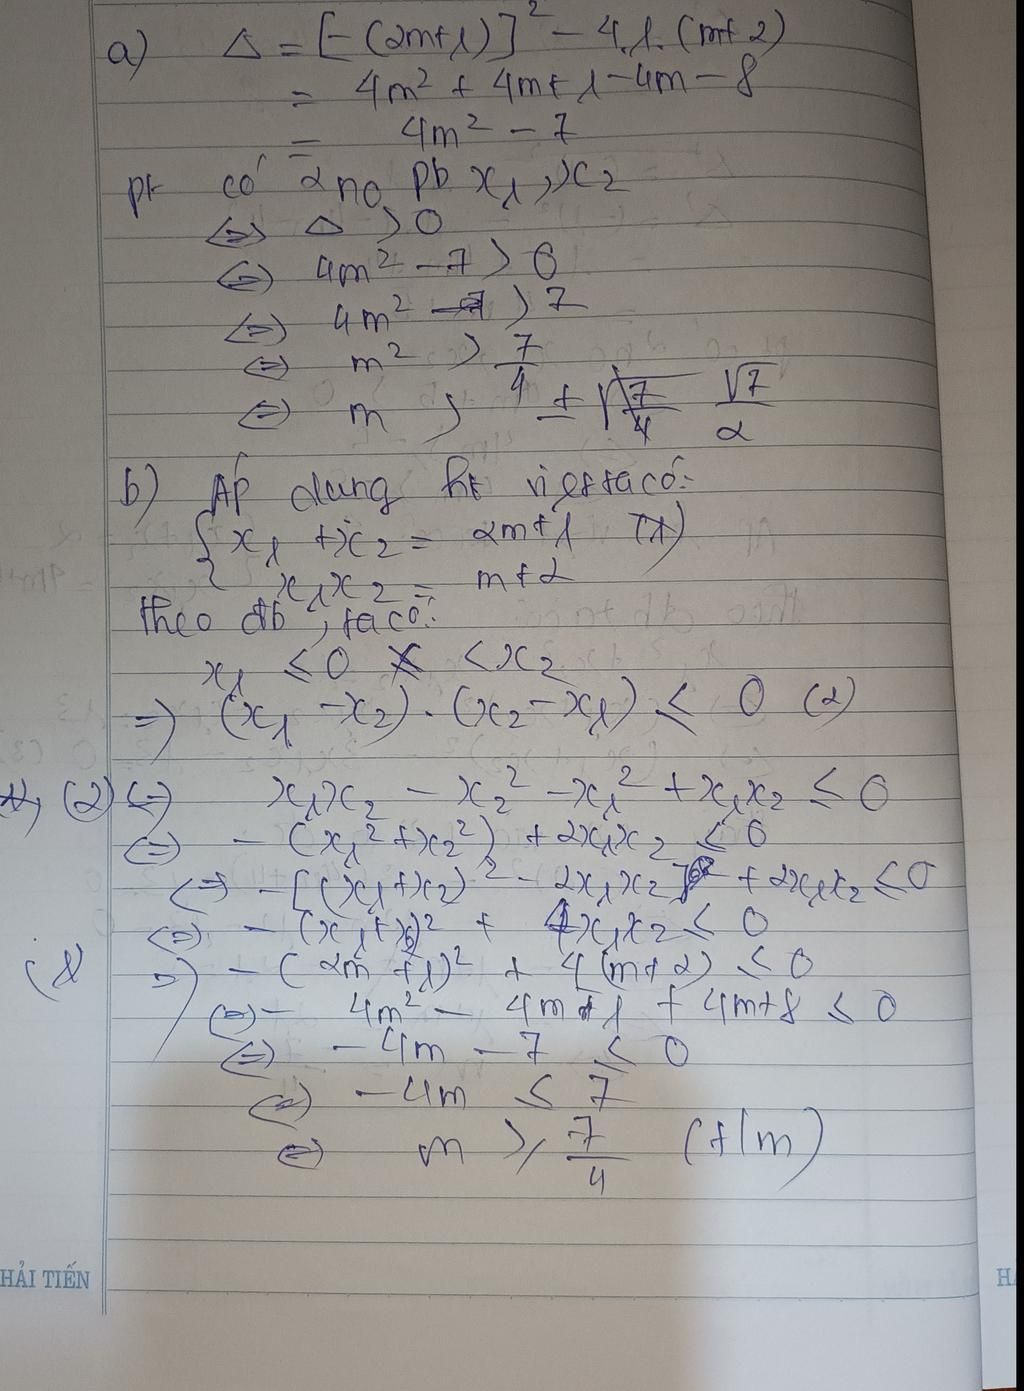 a) Δ = [-(2m+1)]² - 4.1.(m+2)
= 4m² + 4m+1-4m-8
= 4m² - 7
pt có 2 no pb x₁, x₂
<=> Δ > 0
<=> 4m² - 7 > 0
<=> 4m² > 7
<=> m² > 7/4
<=> m > ± √7/2
b) Áp dụng ht viet ta có:
{ x₁ + x₂ = 2m+1 (1)
x₁x₂ = m+2
theo đb, ta có:
x₁ ≤ 0 < x₂
=> (x₁ - x₂).(x₂ - x₁) ≤ 0 (2)
(2) <=> x₁x₂ - x₂² - x₁² + x₁x₂ ≤ 0
<=> - (x₁² + x₂²) + 2x₁x₂ ≤ 0
<=> -[(x₁+x₂)² - 2x₁x₂] + 2x₁x₂ ≤ 0
<=> - (x₁+x₂)² + 4x₁x₂ ≤ 0
(1) => - (2m+1)² + 4(m+2) ≤ 0
<=> - 4m² - 4m + 1 + 4m+8 ≤ 0
<=> - 4m - 7 ≤ 0
<=> - 4m ≤ 7
<=> m ≥ 7/4 (t/m)
HẢI TIẾN